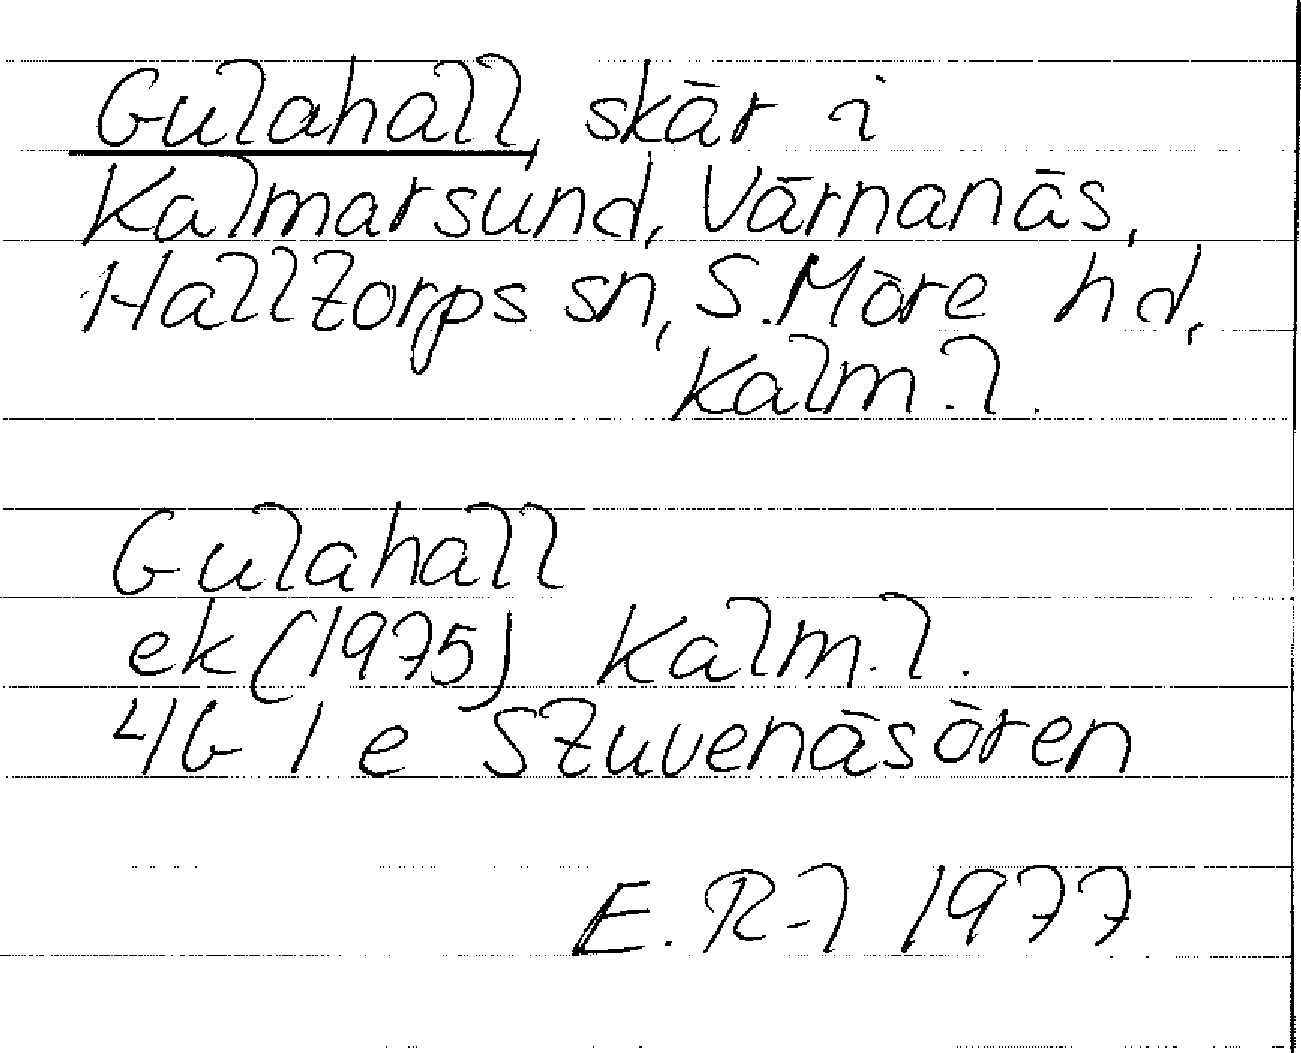 Gulahall, skär i
Kalmarsund, Värnanäs,
Halltorps sn, S. Möre hd,
Kalm. l.
Gulahall
ek (1975) Kalm. l.
4G 1e Stuvenäsören
E. R-l 1977